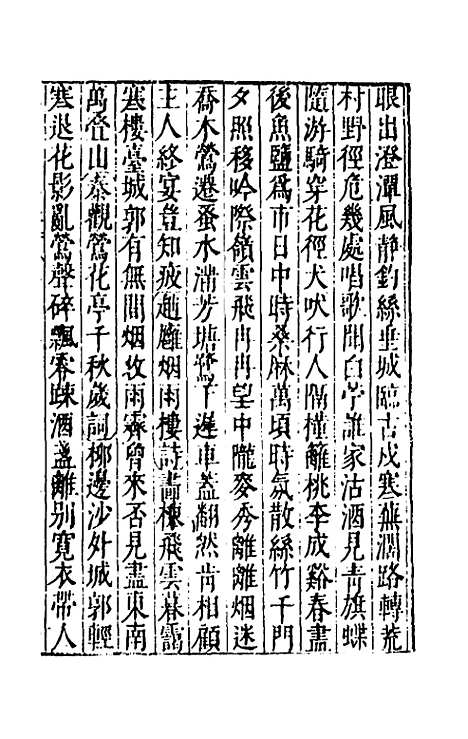 眼出澄潭風静釣絲垂城臨古戍寒蕪濶路轉荒
村野徑危幾處唱歌聞白苧誰家沽酒見青旗蝶
隨游騎穿花徑犬吠行人隔槿籬桃李成谿春盡
後魚鹽爲市日中時桑麻萬頃時氛散絲竹千門
夕照移吟際嶺雲飛冉冉望中隴麥秀離離烟迷
喬木鶯遷蚤水滿芳塘鷺下遲車蓋翩然肯相顧
主人終宴豈知疲趙雝烟雨樓詩畫棟飛雲暮靄
寒樓臺城郭有無間烟收雨霽曾來否見盡東南
萬叠山秦觀鶯花亭千秋歲詞栁邊沙外城郭輕
寒退花影亂鶯聲碎飄零踈酒盞離别寛衣帶人